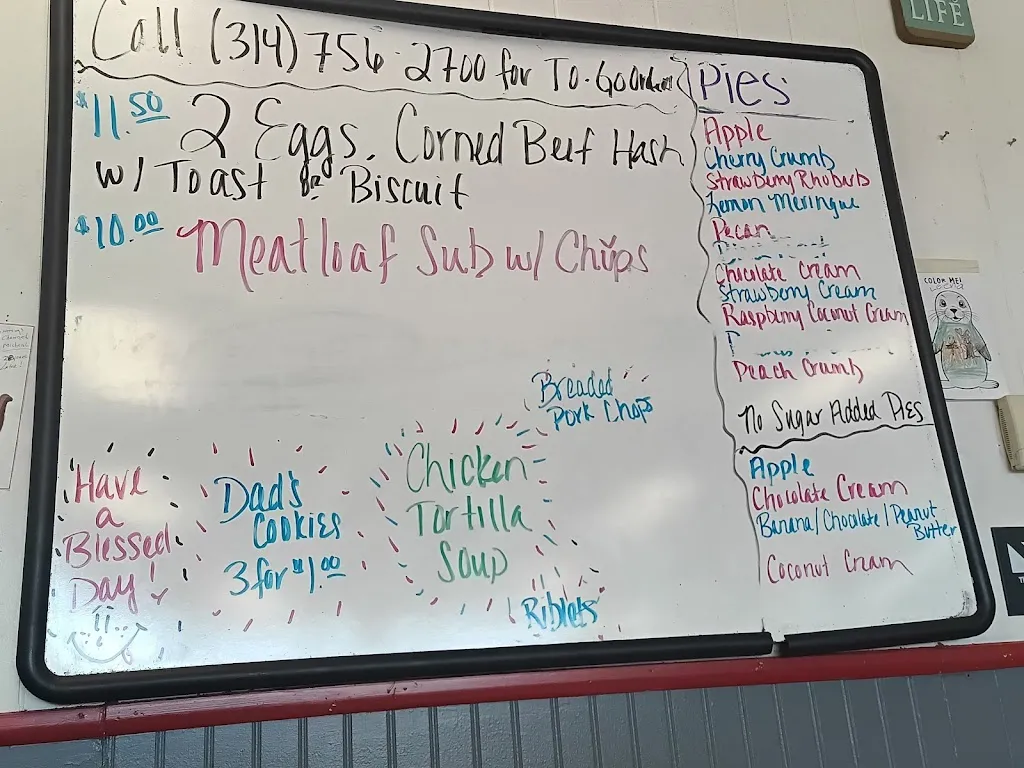 Call (314) 756-2700 for To-Go Orders
$11.50 2 Eggs, Corned Beef Hash
w/ Toast or Biscuit
$10.00 Meatloaf Sub w/ Chips
Breaded
Pork Chops
Have
a
Blessed
Day!
Dad's
Cookies
3 for $1.00
Chicken
Tortilla
Soup
Riblets
Pies
Apple
Cherry Crumb
Strawberry Rhubarb
Lemon Meringue
Pecan
Chocolate Cream
Strawberry Cream
Raspberry Coconut Cream
Peach Crumb
No Sugar Added Pies
Apple
Chocolate Cream
Banana/Chocolate/Peanut
Butter
Coconut Cream
LIFE
COLOR ME!